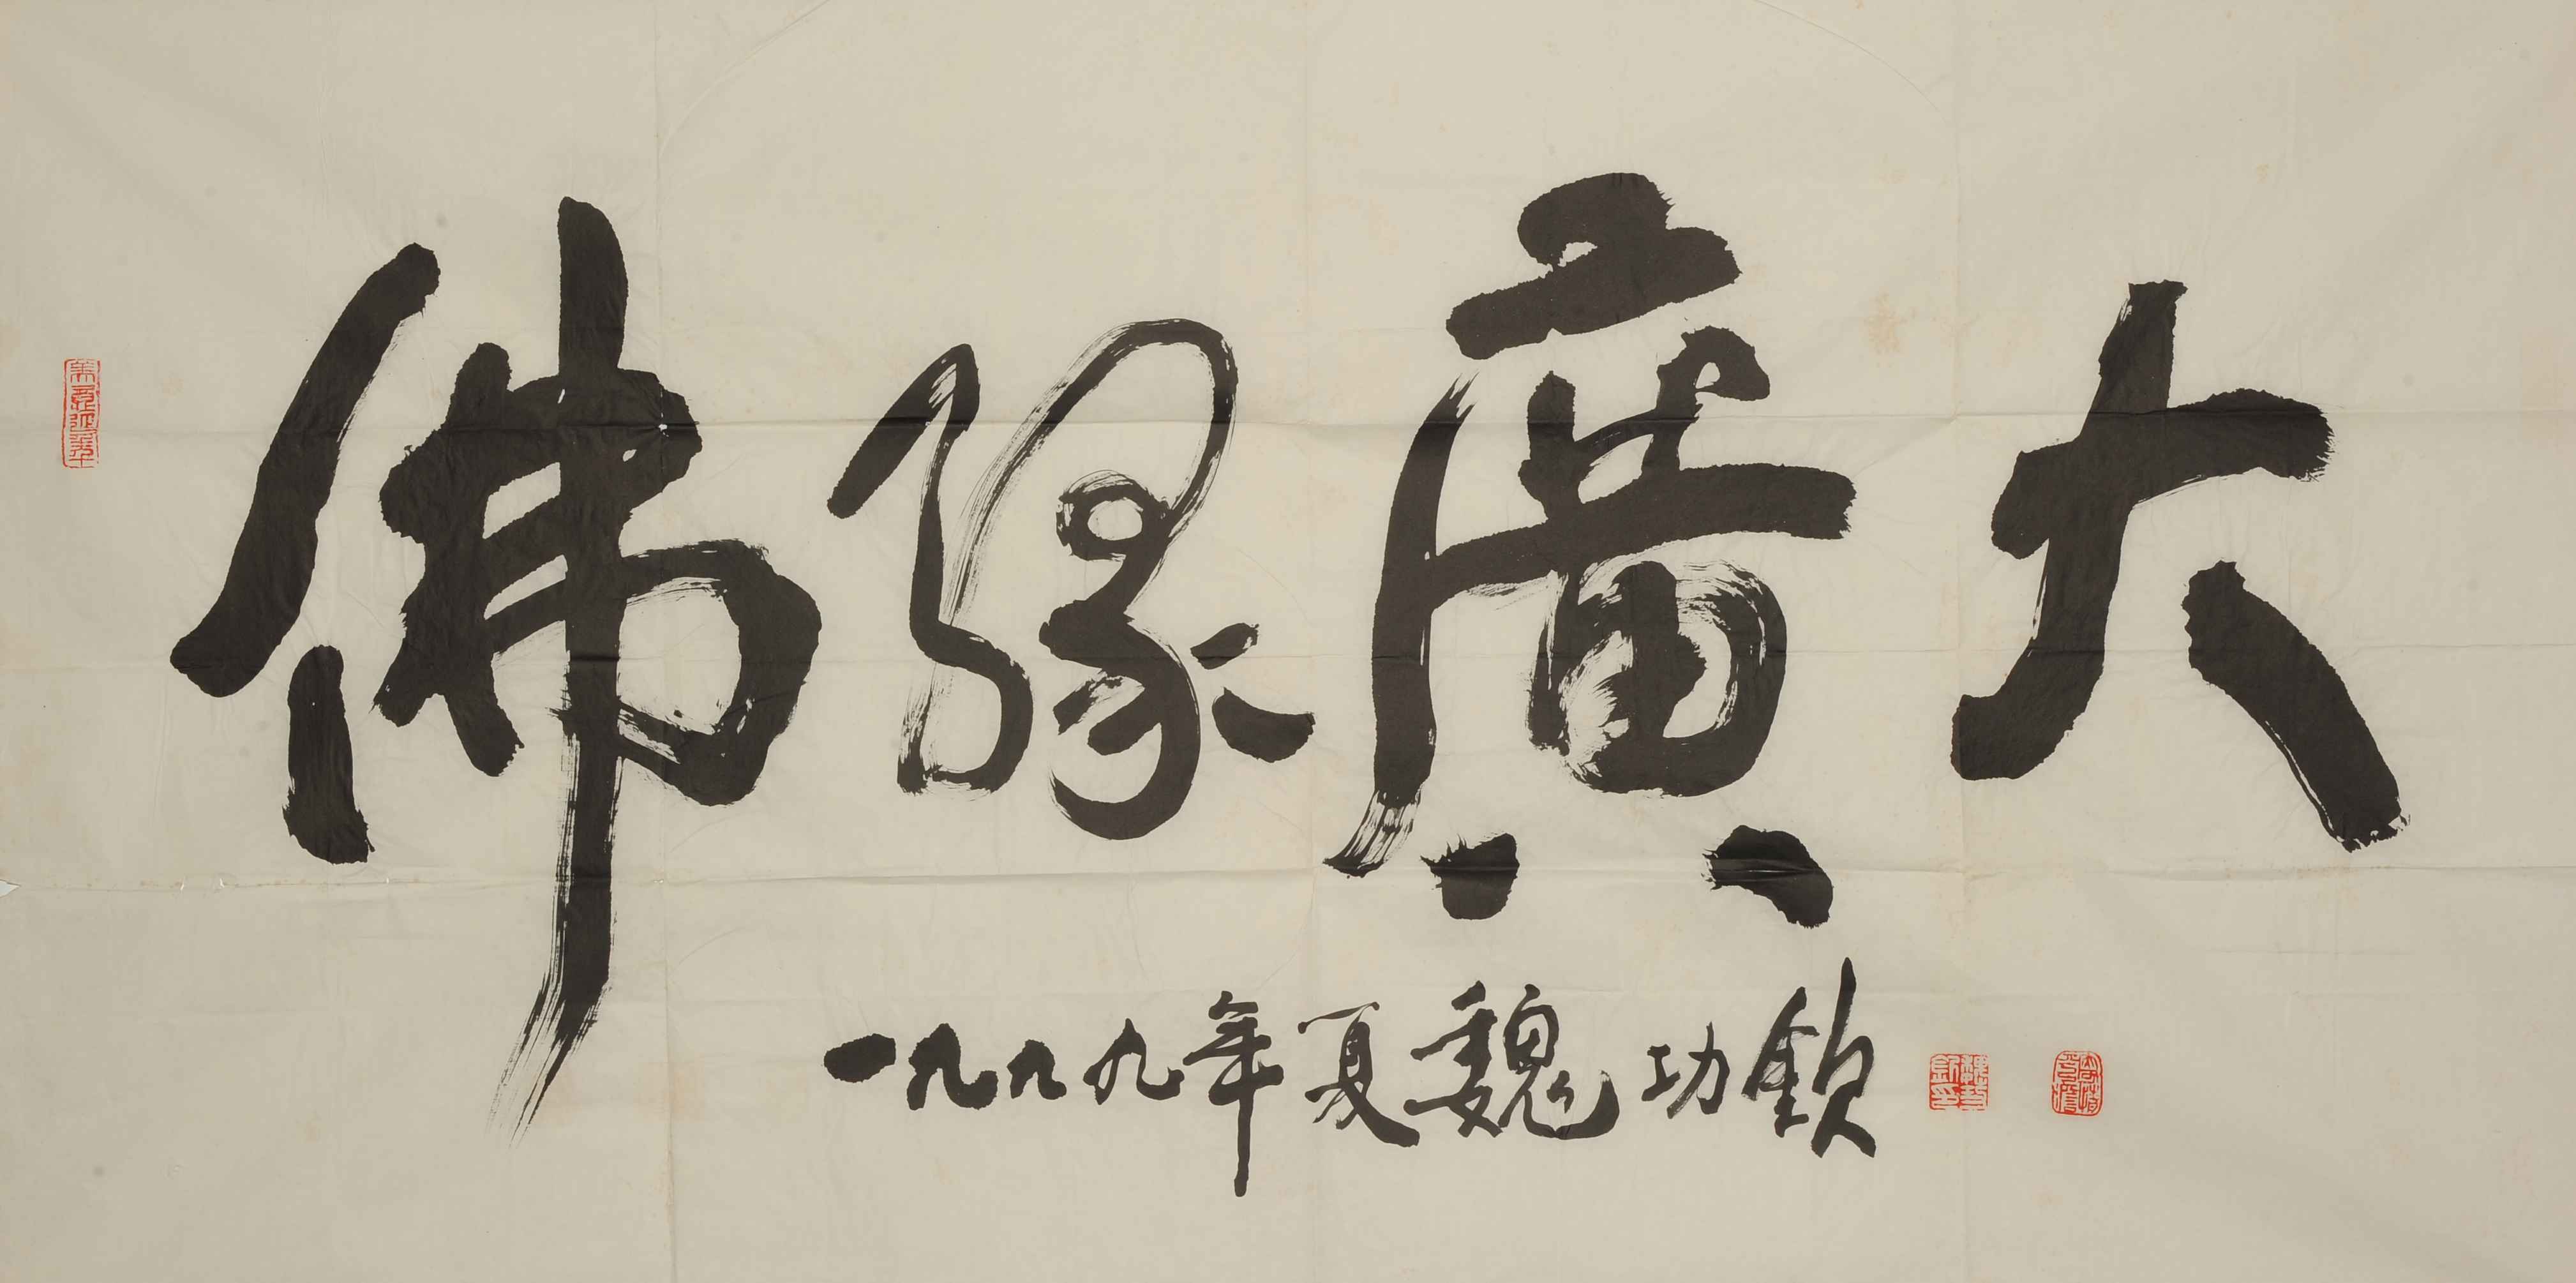 佛缘廣大
一九九九年夏魏功欽